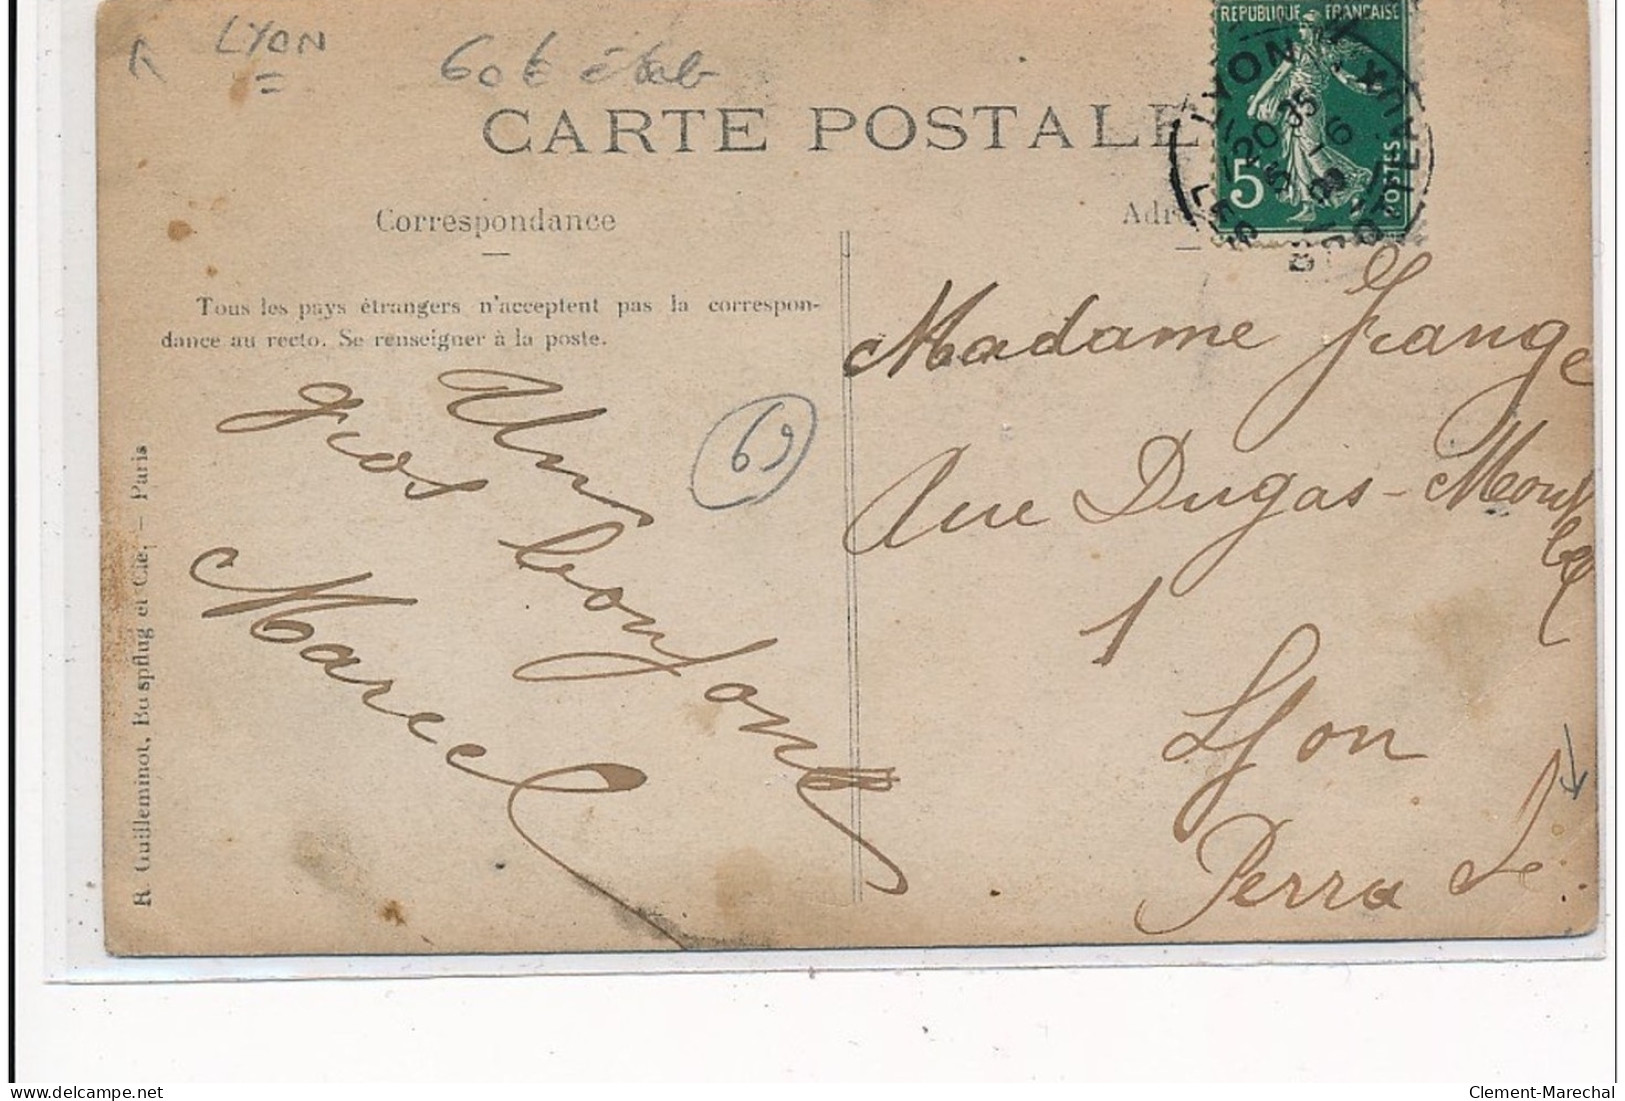 LYON
60 €
CARTE POSTALE
REPUBLIQUE FRANCAISE
5
POSTES
LYON
20 35
5 - 6
LES TERREAUX
Correspondance
Tous les pays étrangers n'acceptent pas la correspon-
dance au recto. Se renseigner à la poste.
Un
gros bonjour
Marcel
69
Madame Frange
Rue Dugas-Montbel
1
Lyon
Perrache
R. Guilleminot, Bœspflug et Cie. – Paris
Clement-Marechal